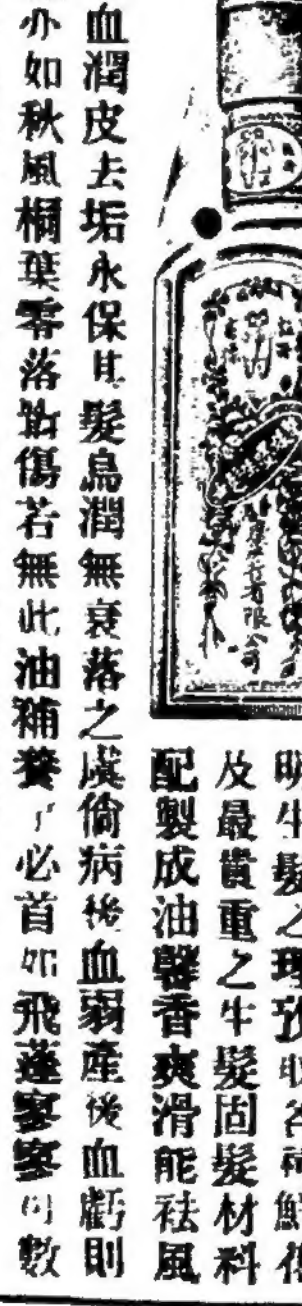 廣生行有限公司
明生髮之理
及最貴重之生髮固髮材料
配製成油馨香爽滑能祛風
血潤皮去垢永保其髮烏潤無衰落之虞倘病後血弱產後血虧則
亦如秋風桐葉零落傷若無此油補養必首如飛蓬寥寥可數